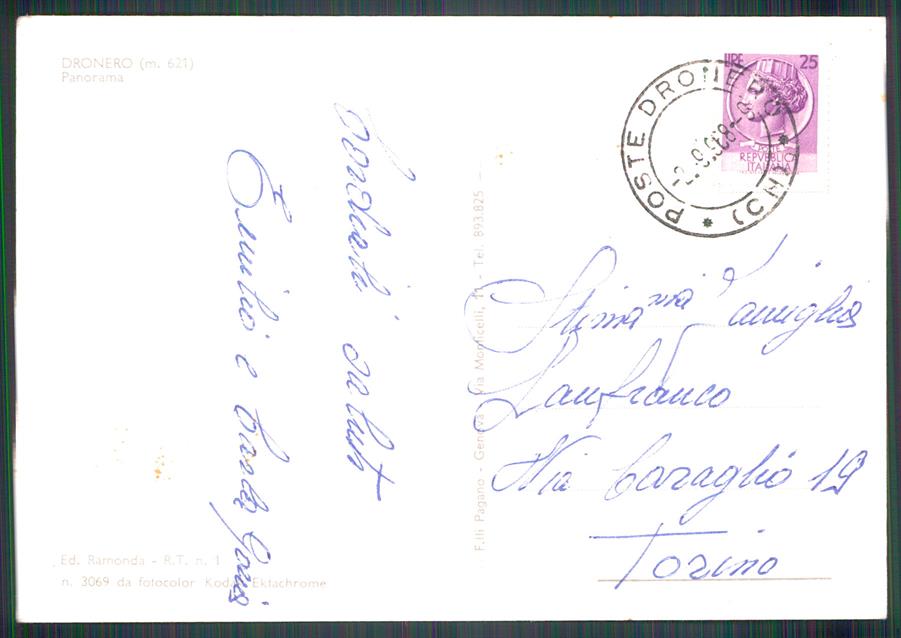 DRONERO (m. 621)
Panorama
Cordiali saluti
Emilio e
POSTE DRONERO (CN)
LIRE 25
REPVBBLICA
ITALIANA
Stima ma Famiglia
Lanfranco
Via Caraglio 19
Torino
F.lli Pagano - Genova - Via Monticelli, 11 - Tel. 893.825
Ed. Ramonda - R.T. n. 1
n. 3069 da fotocolor Kodak Ektachrome